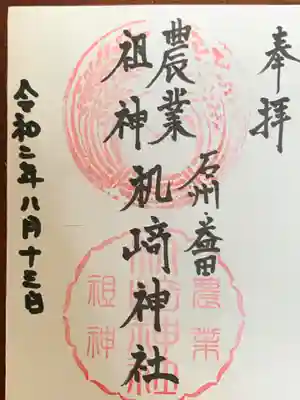 奉拝
農業
石州・益田
祖神
机﨑神社
令和二年八月十三日
農業
祖神